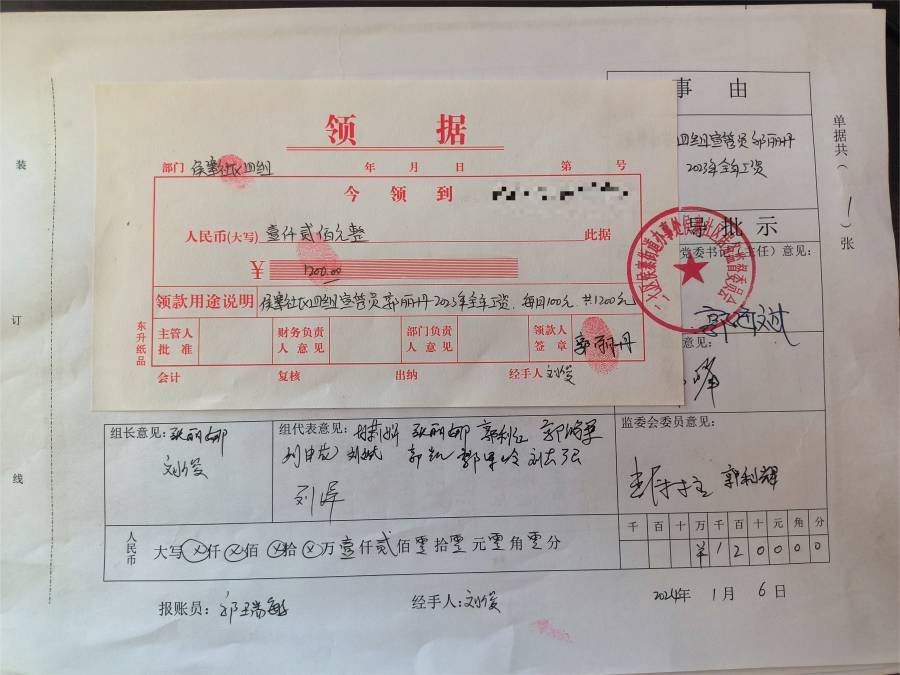 领 据
部门 侯寨社区四组 年 月 日 第 号
今 领 到
人民币(大写) 壹仟贰佰元整 此据
¥ 1200.00
领款用途说明 侯寨社区四组宣管员郭丽丹2023年全年工资,每月100元,共1200元
主管人批准 财务负责人意见 部门负责人意见 领款人签章 郭丽丹
会计 复核 出纳 经手人 刘俊
东升纸品
事 由
四组宣管员郭丽丹
2023年全年工资
批 示
党委书记(主任)意见:
意见:
组长意见: 张丽娜
刘俊
组代表意见: 张丽娜 郭利红
监委会委员意见:
郭利辉
人民币 大写 ⊗仟⊗佰⊗拾⊗万壹仟贰佰零拾零元零角零分
千 百 十 万 千 百 十 元 角 分
¥ 1 2 0 0 0 0
报账员: 郭瑞敏 经手人: 刘俊 2024年 1月 6日
单据共(1)张
装
订
线